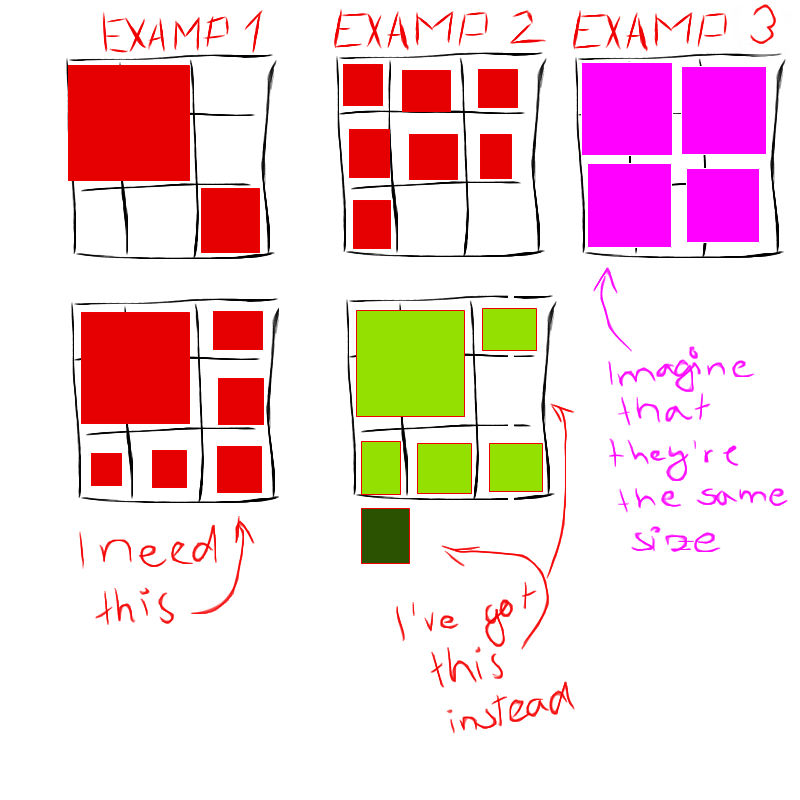 EXAMP 1
EXAMP 2
EXAMP 3
I need
this
I've got
this
instead
Imagine
that
they're
the same
size